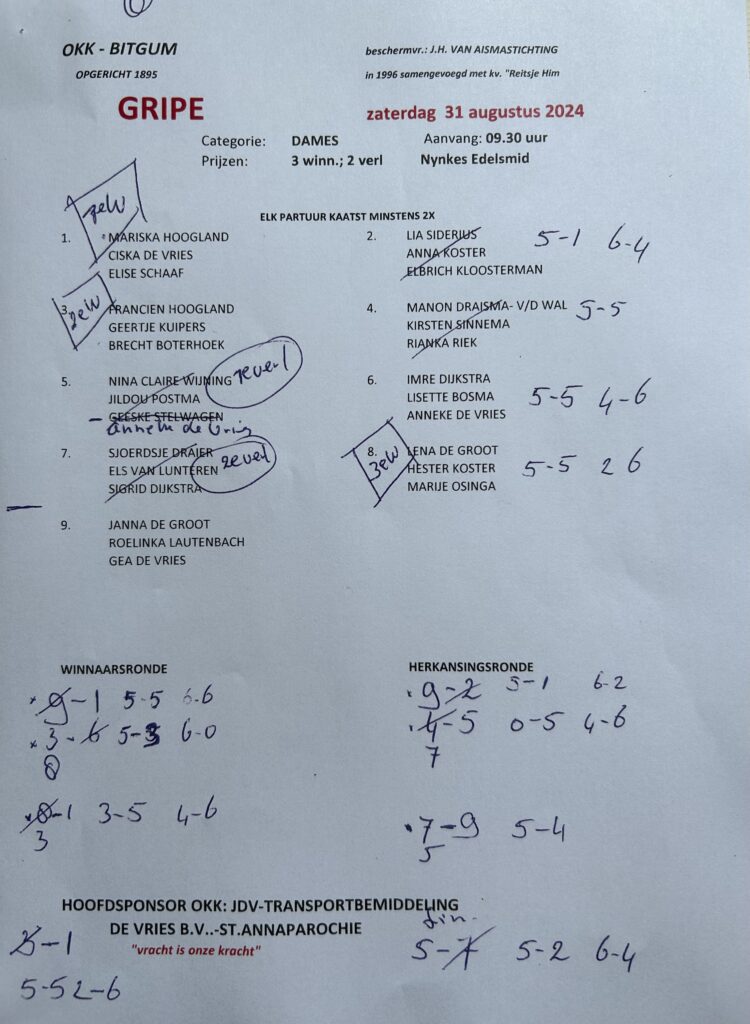 OKK - BITGUM
beschermvr.: J.H. VAN AISMASTICHTING
OPGERICHT 1895
in 1996 samengevoegd met kv. "Reitsje Him
GRIPE
zaterdag 31 augustus 2024
Categorie: DAMES Aanvang: 09.30 uur
Prijzen: 3 winn.; 2 verl Nynkes Edelsmid
ELK PARTUUR KAATST MINSTENS 2X
1. MARISKA HOOGLAND
CISKA DE VRIES
ELISE SCHAAF
2. LIA SIDERIUS 5-1 6-4
ANNA KOSTER
ELBRICH KLOOSTERMAN
3. 2eW FRANCIEN HOOGLAND
GEERTJE KUIPERS
BRECHT BOTERHOEK
4. MANON DRAISMA- V/D WAL 5-5
KIRSTEN SINNEMA
RIANKA RIEK
5. NINA CLAIRE WIJNING 1everl
JILDOU POSTMA
GEESKE STELWAGEN
Anneke de Vries
6. IMRE DIJKSTRA
LISETTE BOSMA 5-5 4-6
ANNEKE DE VRIES
7. SJOERDSJE DRAIER
ELS VAN LUNTEREN 2everl
SIGRID DIJKSTRA
8. 3eW LENA DE GROOT
HESTER KOSTER 5-5 2 6
MARIJE OSINGA
9. JANNA DE GROOT
ROELINKA LAUTENBACH
GEA DE VRIES
WINNAARSRONDE
9-1 5-5 6-6
3-6 5-3 6-0
8
8-1 3-5 4-6
3
HERKANSINGSRONDE
9-2 5-1 6-2
4-5 0-5 4-6
7
7-9 5-4
5
HOOFDSPONSOR OKK: JDV-TRANSPORTBEMIDDELING
DE VRIES B.V..-ST.ANNAPAROCHIE
"vracht is onze kracht"
3-1
5-5 2-6
fin.
5-7 5-2 6-4